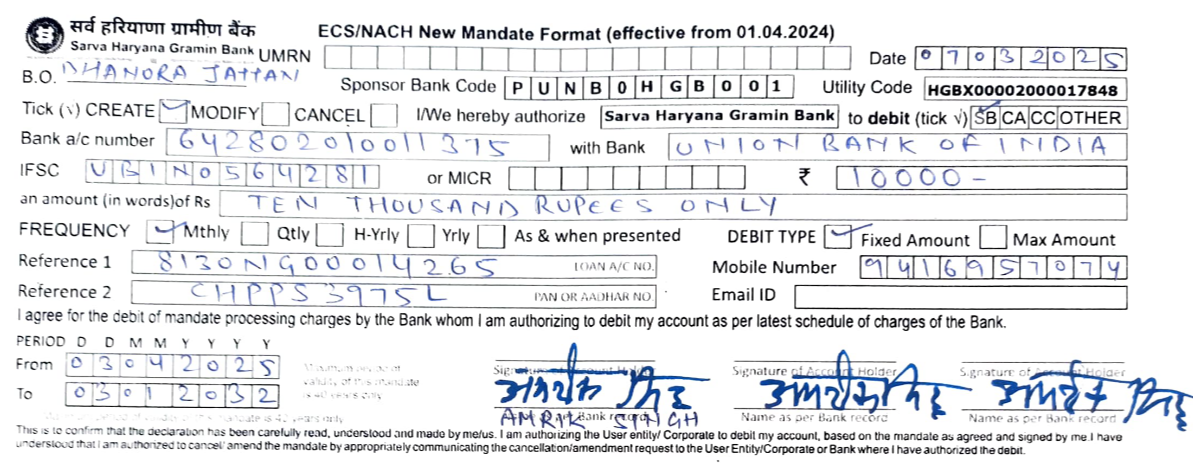 सर्व हरियाणा ग्रामीण बैंक
Sarva Haryana Gramin Bank
ECS/NACH New Mandate Format (effective from 01.04.2024)
UMRN Date 07032025
B.O. DHANORA JATTAN
Sponsor Bank Code PUNB0HGB001 Utility Code HGBX00002000017848
Tick (√) CREATE ✓ MODIFY CANCEL I/We hereby authorize Sarva Haryana Gramin Bank to debit (tick √) SB CA CC OTHER
Bank a/c number 642802010011375 with Bank UNION BANK OF INDIA
IFSC UBIN0564281 or MICR ₹ 10000-
an amount (in words)of Rs TEN THOUSAND RUPEES ONLY
FREQUENCY ✓ Mthly Qtly H-Yrly Yrly As & when presented DEBIT TYPE ✓ Fixed Amount Max Amount
Reference 1 8130NG00014265 LOAN A/C NO. Mobile Number 9416957074
Reference 2 CHPPS3975L PAN OR AADHAR NO. Email ID
I agree for the debit of mandate processing charges by the Bank whom I am authorizing to debit my account as per latest schedule of charges of the Bank.
PERIOD D D M M Y Y Y Y
From 03042025
To 03012032
Maximum period of validity of this mandate is 40 years only
Signature of Account Holder Signature of Account Holder Signature of Account Holder
AMRIK SINGH
Name as per Bank record Name as per Bank record
This is to confirm that the declaration has been carefully read, understood and made by me/us. I am authorizing the User entity/ Corporate to debit my account, based on the mandate as agreed and signed by me. I have
understood that I am authorized to cancel/ amend the mandate by appropriately communicating the cancellation/amendment request to the User Entity/Corporate or Bank where I have authorized the debit.